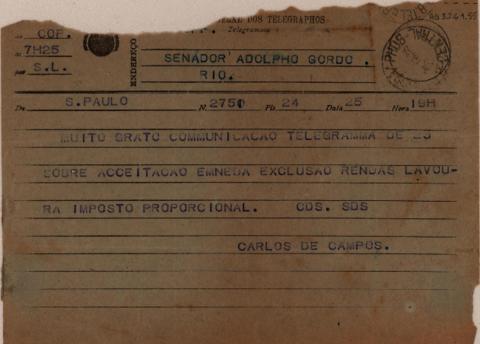 DOS TELEGRAPHOS
Telegramma
COP.
7H25
por S.L.
ENDEREÇO
SENADOR ADOLPHO GORDO.
RIO.
De S.PAULO N. 2750 Pls 24 Data 25 Hora 19H
MUITO GRATO COMMUNICACAO TELEGRAMMA DE 23
SOBRE ACCEITACAO EMNEDA EXCLUSAO RENDAS LAVOU-
RA IMPOSTO PROPORCIONAL. CDS. SDS
CARLOS DE CAMPOS.